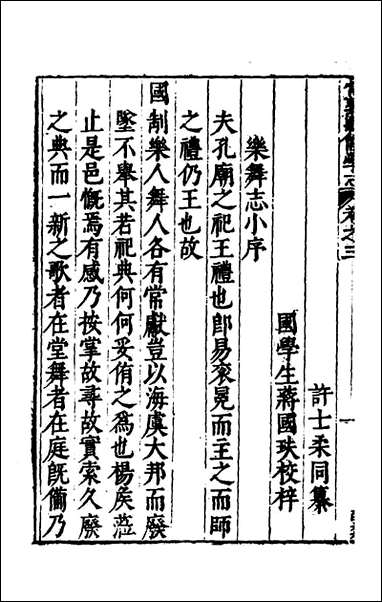 卷之三
許士柔同纂
國學生蔣國玞校梓
樂舞志小序
夫孔廟之祀王禮也卽易衮冕而主之而師
之禮仍王也故
國制樂人舞人各有常獻豈以海虞大邦而廢
墜不舉其若祀典何何妥侑之爲也楊矦蒞
止是邑慨焉有感乃按掌故尋故實索久廢
之典而一新之歌者在堂舞者在庭旣備乃